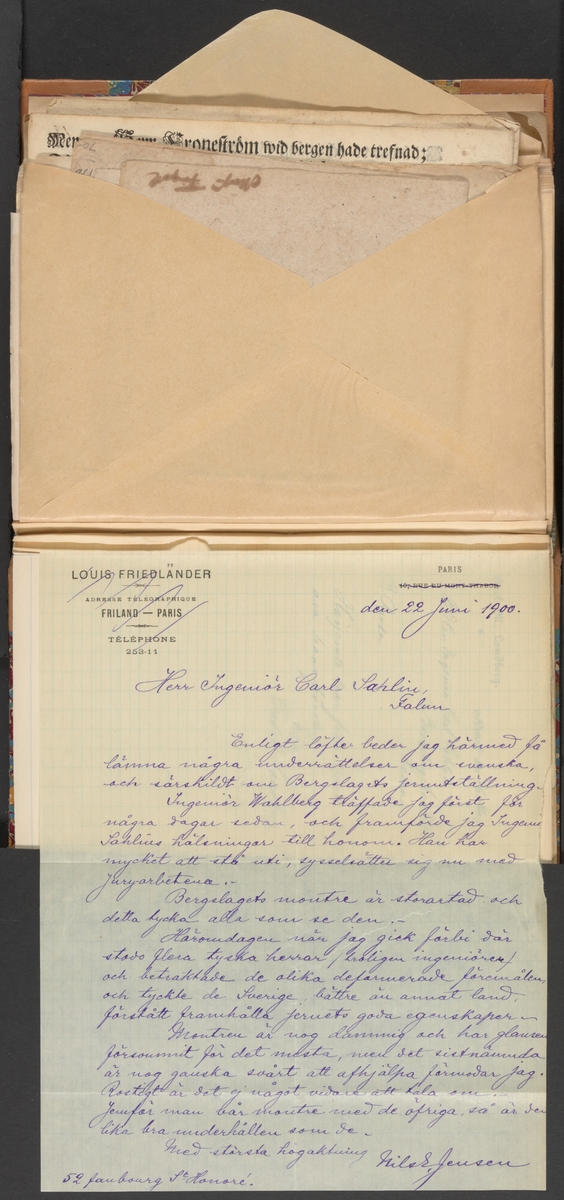 Croneström wid bergen hade trefnad;
LOUIS FRIEDLÄNDER
ADRESSE TÉLÉGRAPHIQUE
FRILAND — PARIS
TÉLÉPHONE
253-11
PARIS
10, RUE DU MONT-THABOR
den 22 Juni 1900.
Herr Ingeniör Carl Sahlin,
Falun
Enligt löfte beder jag härmed få
lämna några underrättelser om svenska,
och särskildt om Bergslagets jernutställning.
Ingeniör Wahlberg träffade jag först för
några dagar sedan, och framförde jag Ingeniör
Sahlins hälsningar till honom. Han har
mycket att stå uti, sysselsätter sig nu med
Juryarbetena.-
Bergslagets montre är storartad och
detta tycka alla som se den.-
Häromdagen när jag gick förbi där
stodo flera tyska herrar (troligen ingeniörer)
och betraktade de olika deformerade föremålen,
och tyckte de Sverige bättre än annat land,
förstått framhålla jernets goda egenskaper.-
Montren är nog dammig och har glansen
försvunnit för det mesta, men det sistnämnda
är nog ganska svårt att afhjälpa förmodar jag.
Rostigt är det ej något vidare att tala om.-
Jemför man vår montre med de öfriga, så är den
lika bra underhållen som de.-
Med största högaktning
Nils E. Jensen
52 faubourg St Honoré.